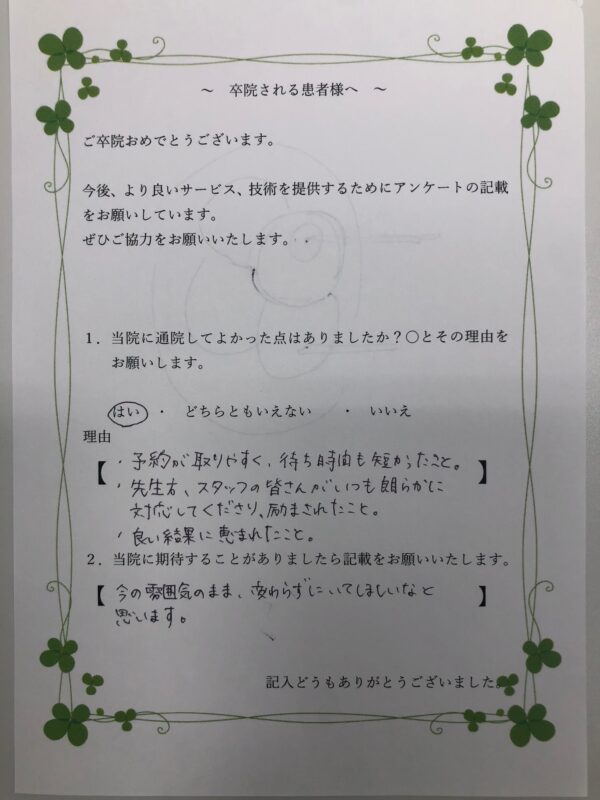 ～ 卒院される患者様へ ～
ご卒院おめでとうございます。
今後、より良いサービス、技術を提供するためにアンケートの記載
をお願いしています。
ぜひご協力をお願いいたします。
1．当院に通院してよかった点はありましたか？〇とその理由を
お願いします。
はい ・ どちらともいえない ・ いいえ
理由
【・予約が取りやすく、待ち時間も短かったこと。】
・先生方、スタッフの皆さんがいつも朗らかに
対応してくださり、励まされたこと。
・良い結果に恵まれたこと。
2．当院に期待することがありましたら記載をお願いいたします。
【今の雰囲気のまま、変わらずにいてほしいなと】
思います。
記入どうもありがとうございました。